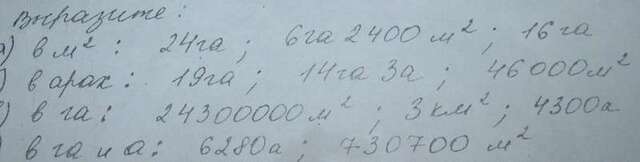 Выразите:
а) в м²: 24га; 6га 2400 м²; 16га
) в арах: 19га; 14га 3а; 46000м²
) в га: 24300000м²; 3км²; 4300а
) в га и а: 6280а; 730700 м²